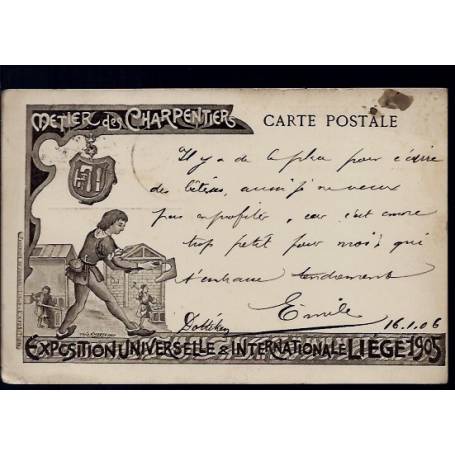 METIER des CHARPENTIERS
CARTE POSTALE
Il y a de la place pour écrire
des bêtises, aussi je ne veux
pas en profiter, car c'est encore
trop petit pour moi qui
t'embrasse tendrement
Emile
16.1.06
EXPOSITION UNIVERSELLE & INTERNATIONALE LIÈGE 1905